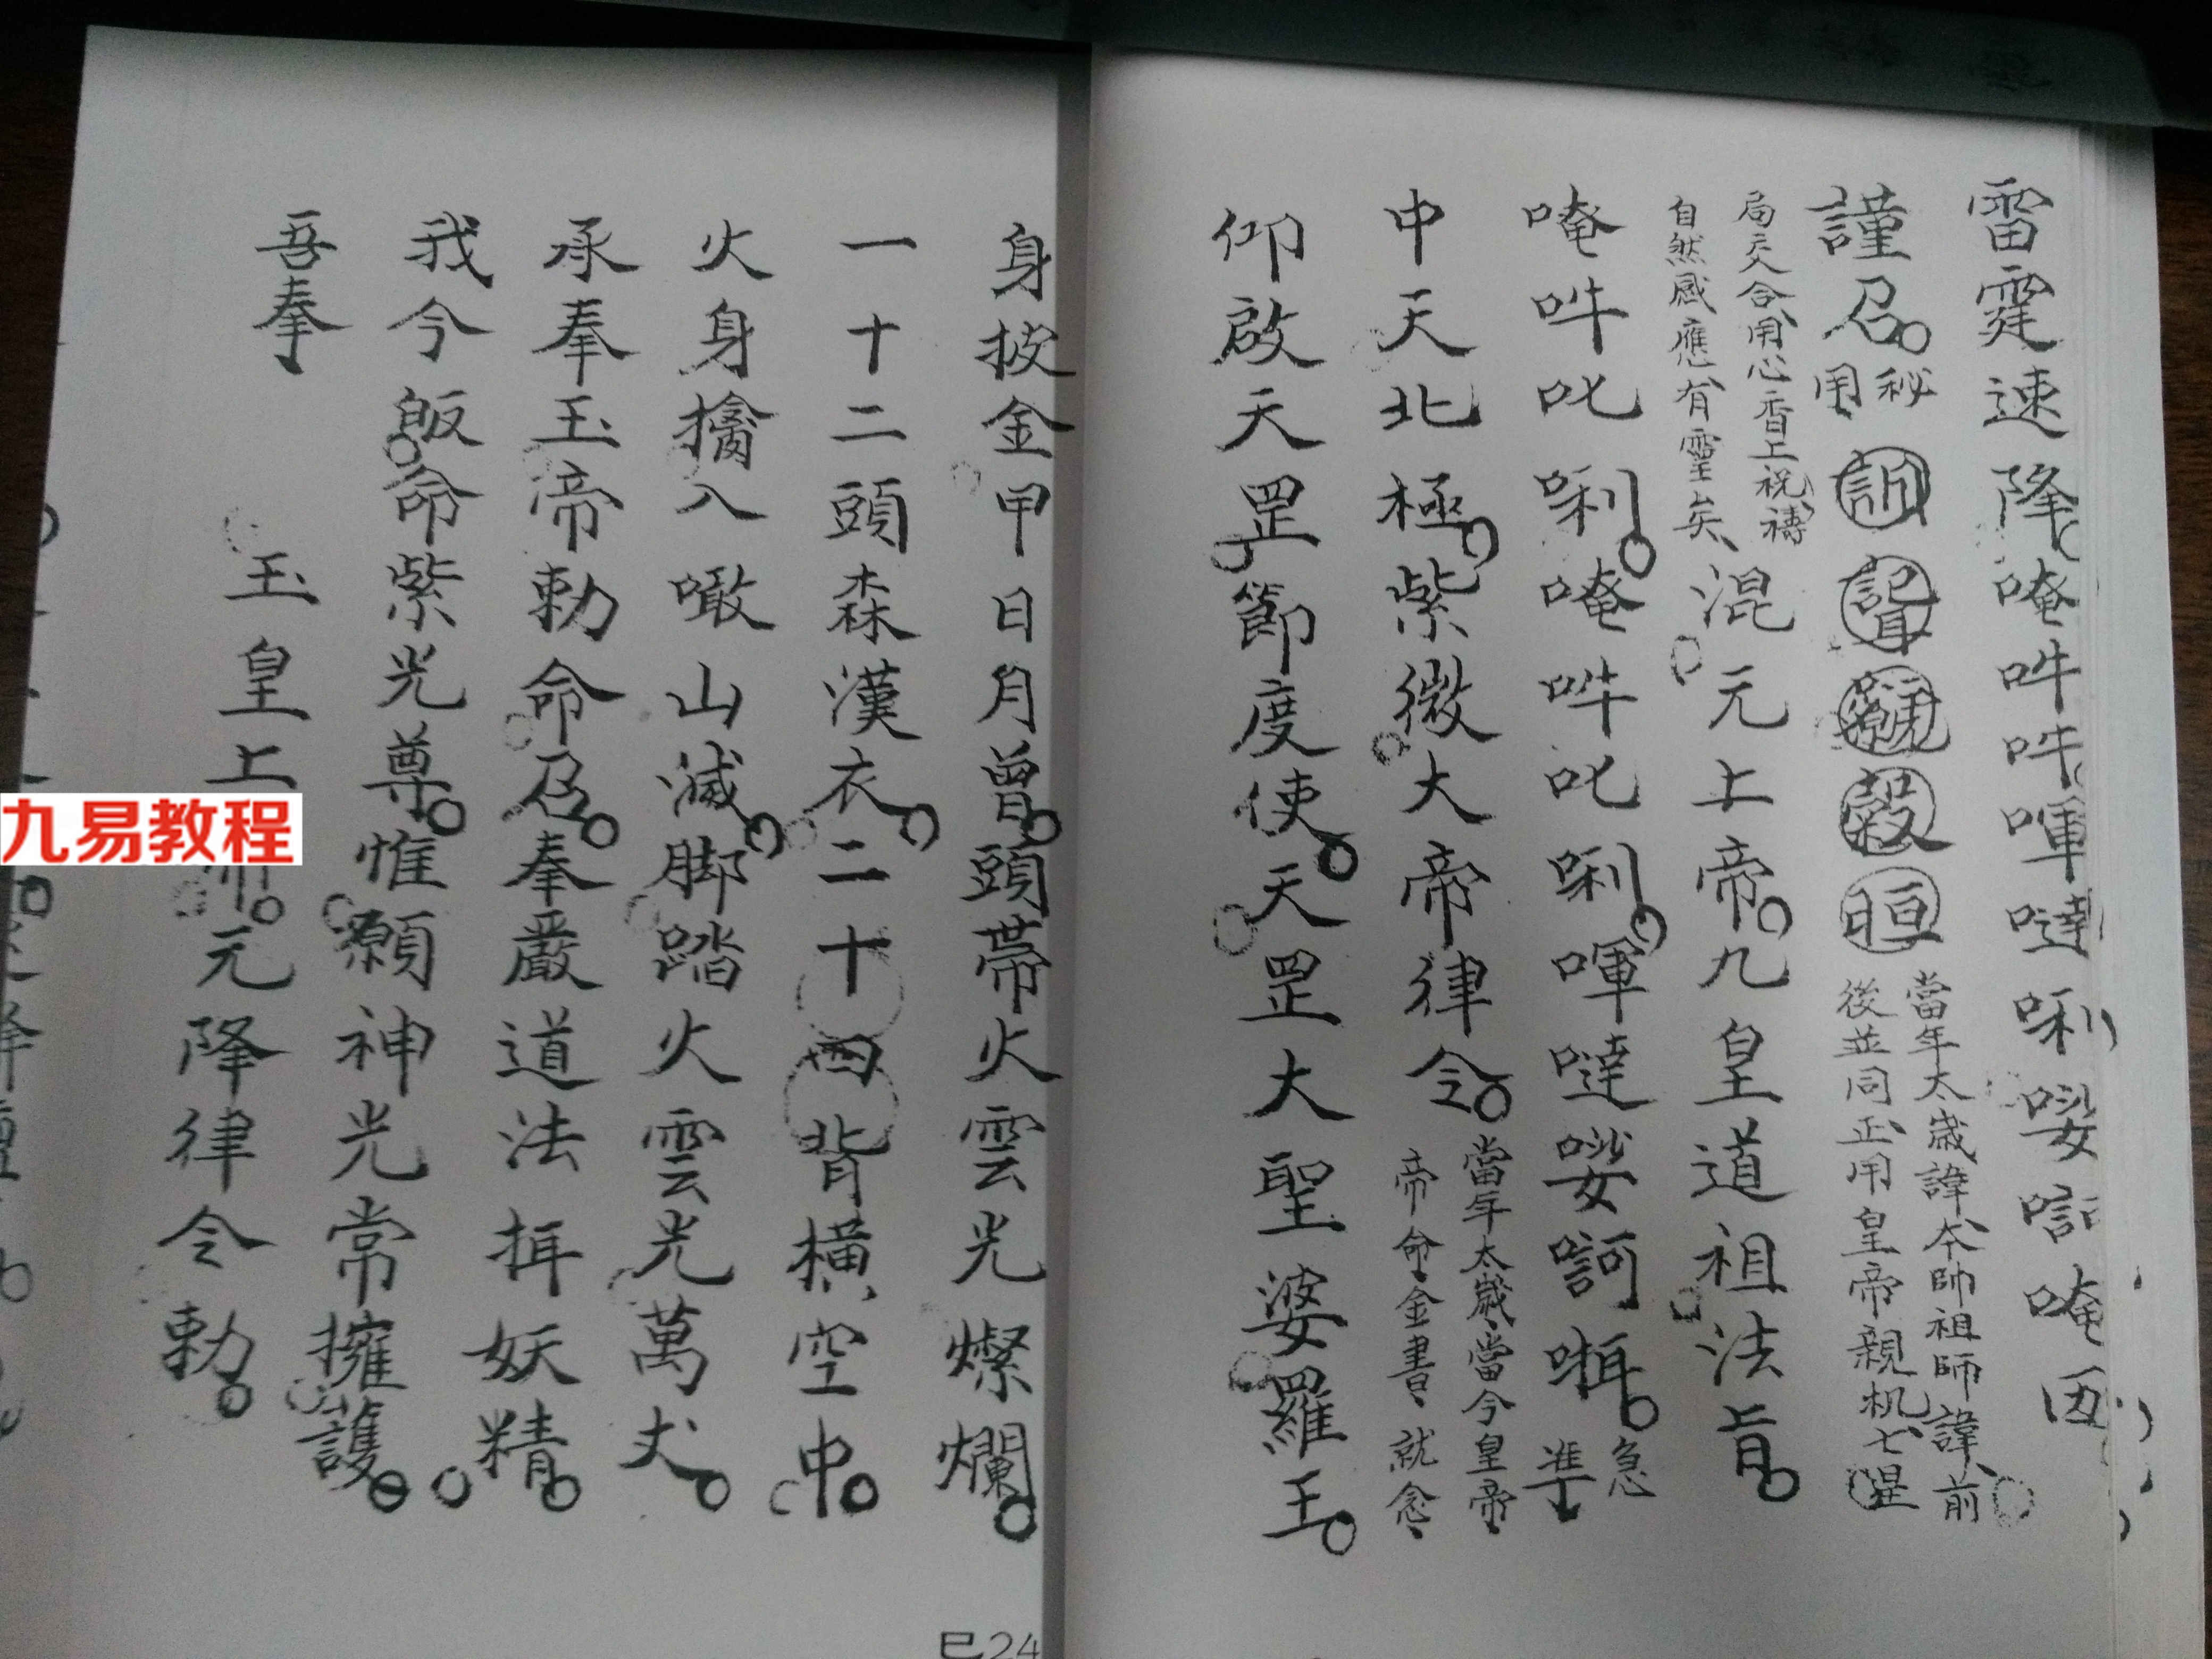 雷霆速降唵吽吽㖔噠唎
謹召
秘用
當年太歲諱本師祖師諱前
後並同正用皇帝親机七星
局天人合用心香上祝禱
自然感應有靈矣
混元上帝九皇道祖法旨
唵吽叱唎唵吽叱唎㖔噠
急準
中天北極紫微大帝律令
當年太歲當今皇帝
帝命金書就念
仰啟天罡節度使天罡大聖婆羅王
身披金甲日月曾頭帶火雲光燦爛
一十二頭森漢衣二十四背橫空中
火身擒入噉山滅脚踏火雲光萬丈
承奉玉帝勅命召奉嚴道法揖妖精
我今皈命紫光尊惟願神光常擁護
吾奉
玉皇上
元降律令勅
九易教程
巳24